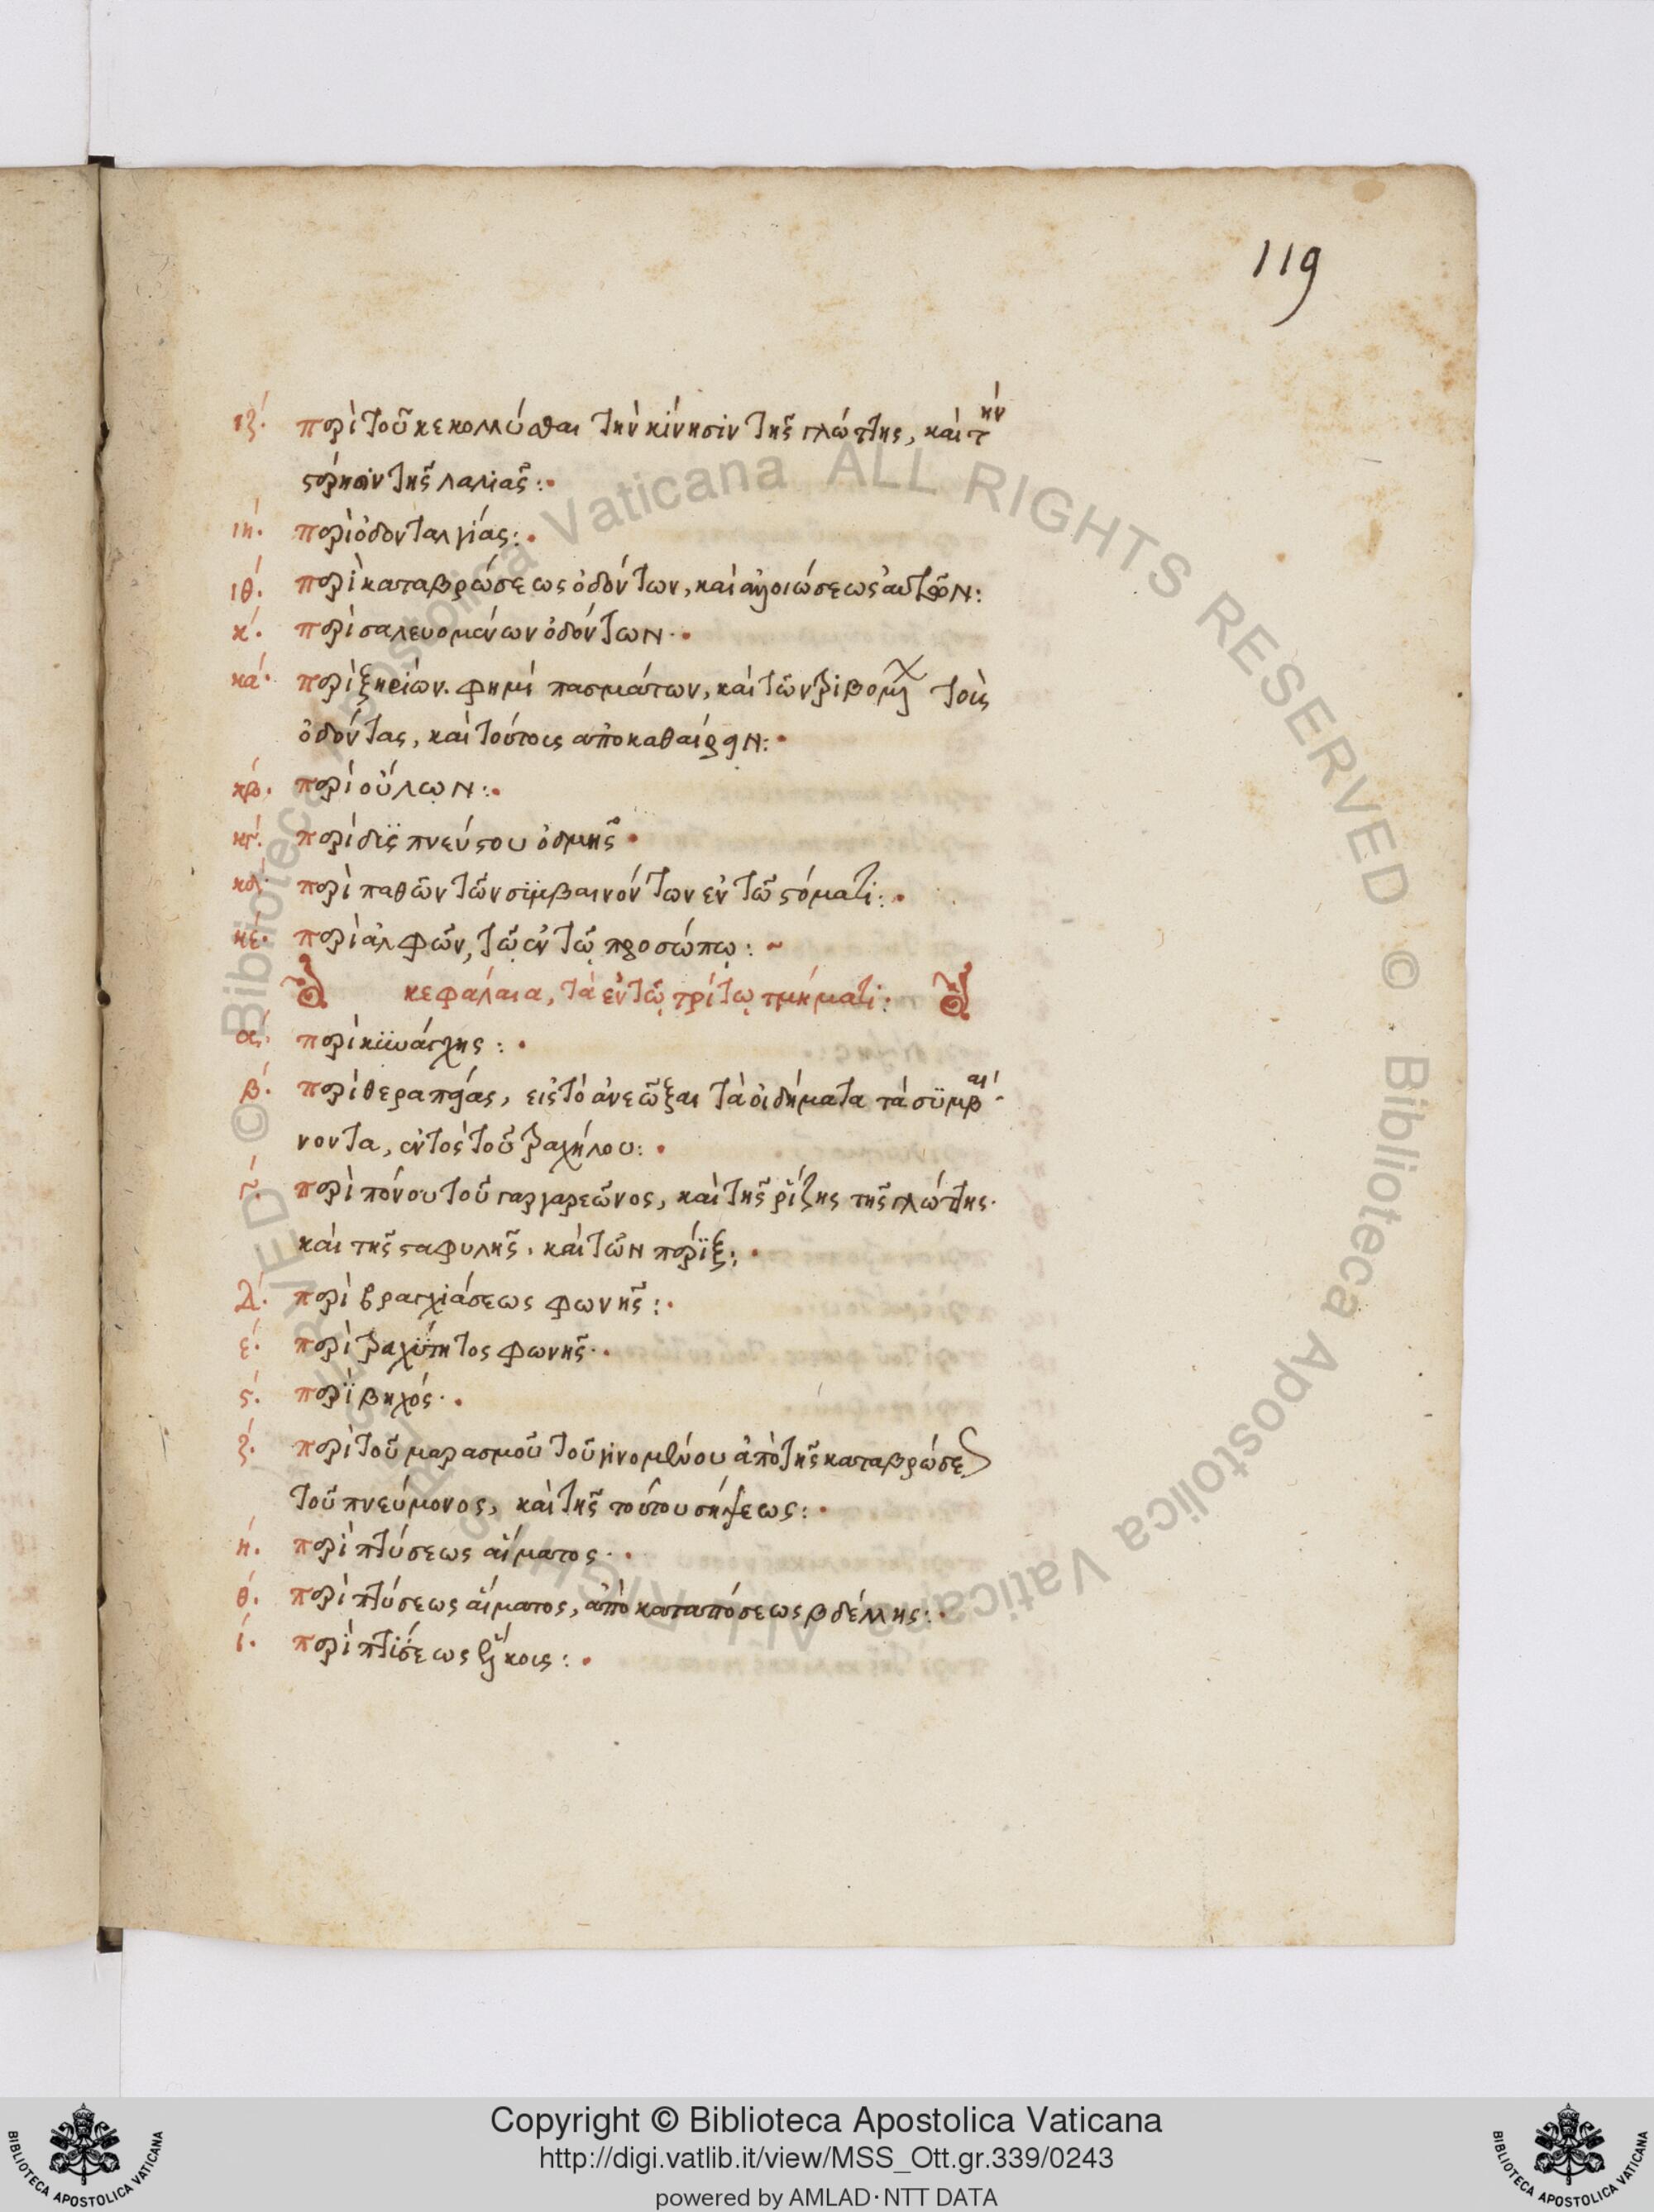 119
ιζ΄. περὶ τοῦ κεκολλύσθαι τὴν κίνησιν τῆς γλώττης, καὶ τὴν
στέρησιν τῆς λαλιᾶς:
ιη΄. περὶ ὀδονταλγίας:
ιθ΄. περὶ καταβρώσεως ὀδόντων, καὶ ἀλλοιώσεως αὐτῶν:
κ΄. περὶ σαλευομένων ὀδόντων·
κα΄. περὶ ξηρίων. φημὶ πασμάτων, καὶ τῶν τριβομ τοὺς
ὀδόντας, καὶ τούτοις ἀποκαθαίρειν:
κβ΄. περὶ οὔλων:
κγ΄. περὶ δϊς πνεύστου ὀδμῆς
κδ΄. περὶ παθῶν τῶν σϋμβαινόντων ἐν τῶ στόματι:
κε΄. περὶ ἀλφῶν, τῶ ἐν τῶ προσώπω:
κεφάλαια, τὰ ἐν τῶ τρίτω τμήματι:
α΄. περὶ κϋνάγχης:
β΄. περὶ θεραπείας, εἰς τὸ ἀνεῶξαι τὰ οἰδήματα τὰ σϋμβαί
νοντα, ἐντὸς τοῦ τραχήλου:
γ΄. περὶ πόνου τοῦ γαργαρεῶνος, καὶ τῆς ρίζης τῆς γλώττης·
καὶ τῆς σταφυλῆς· καὶ τῶν πέρϊξ:
δ΄. περὶ βραγχιάσεως φωνῆς:
ε΄. περὶ τραχϋτητος φωνῆς·
ς΄. περὶ βηχός·
ζ΄. περὶ τοῦ μαρασμοῦ τοῦ γινομένου ἀπὸ τῆς καταβρώσε
τοῦ πνεύμονος, καὶ τῆς τούτου σήψεως:
η΄. περὶ πτύσεως αἵματος·
θ΄. περὶ πτύσεως αἵματος, ἀπὸ καταπόσεως βδέλλης:
ι΄. περὶ πτίσεως ἕλκοις:
Copyright © Biblioteca Apostolica Vaticana
http://digi.vatlib.it/view/MSS_Ott.gr.339/0243
powered by AMLAD·NTT DATA
BIBLIOTECA APOSTOLICA VATICANA
BIBLIOTECA APOSTOLICA VATICANA